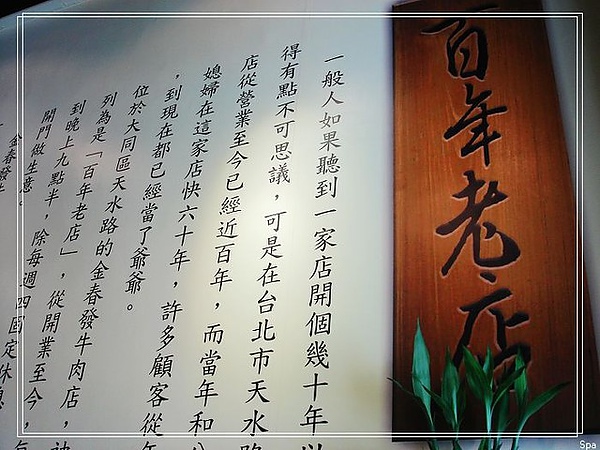 百年老店
一般人如果聽到一家店開個幾十年以
得有點不可思議，可是在台北市天水路
店從營業至今已經近百年，而當年和公
媳婦在這家店快六十年，許多顧客從年
，到現在都已經當了爺爺。
位於大同區天水路的金春發牛肉店，被
列為是「百年老店」，從開業至今，每
到晚上九點半，除每週四固定休息
開門做生意。
金春發牛
Spa